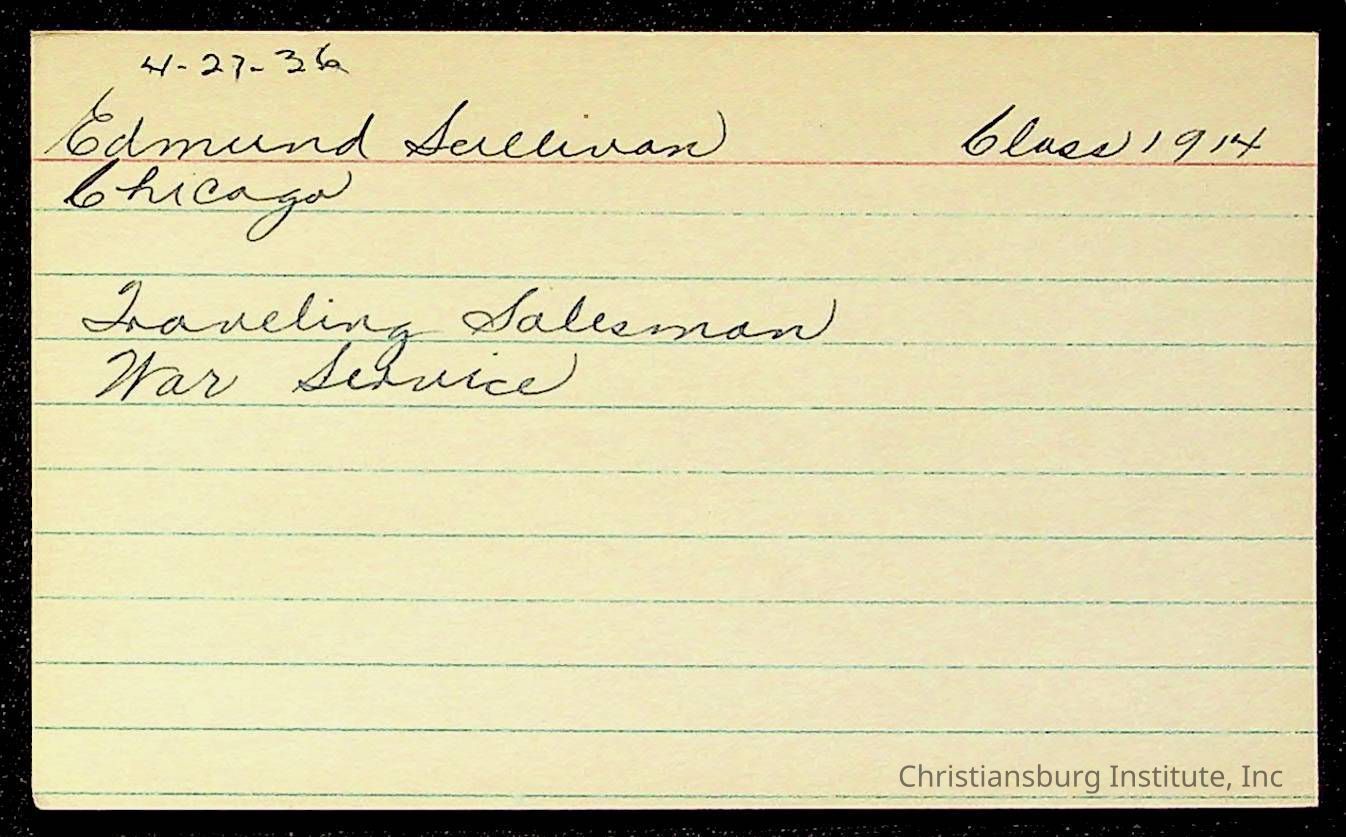 4-27-36
Edmund Sullivan Class 1914
Chicago
Traveling Salesman
War Service
Christiansburg Institute, Inc